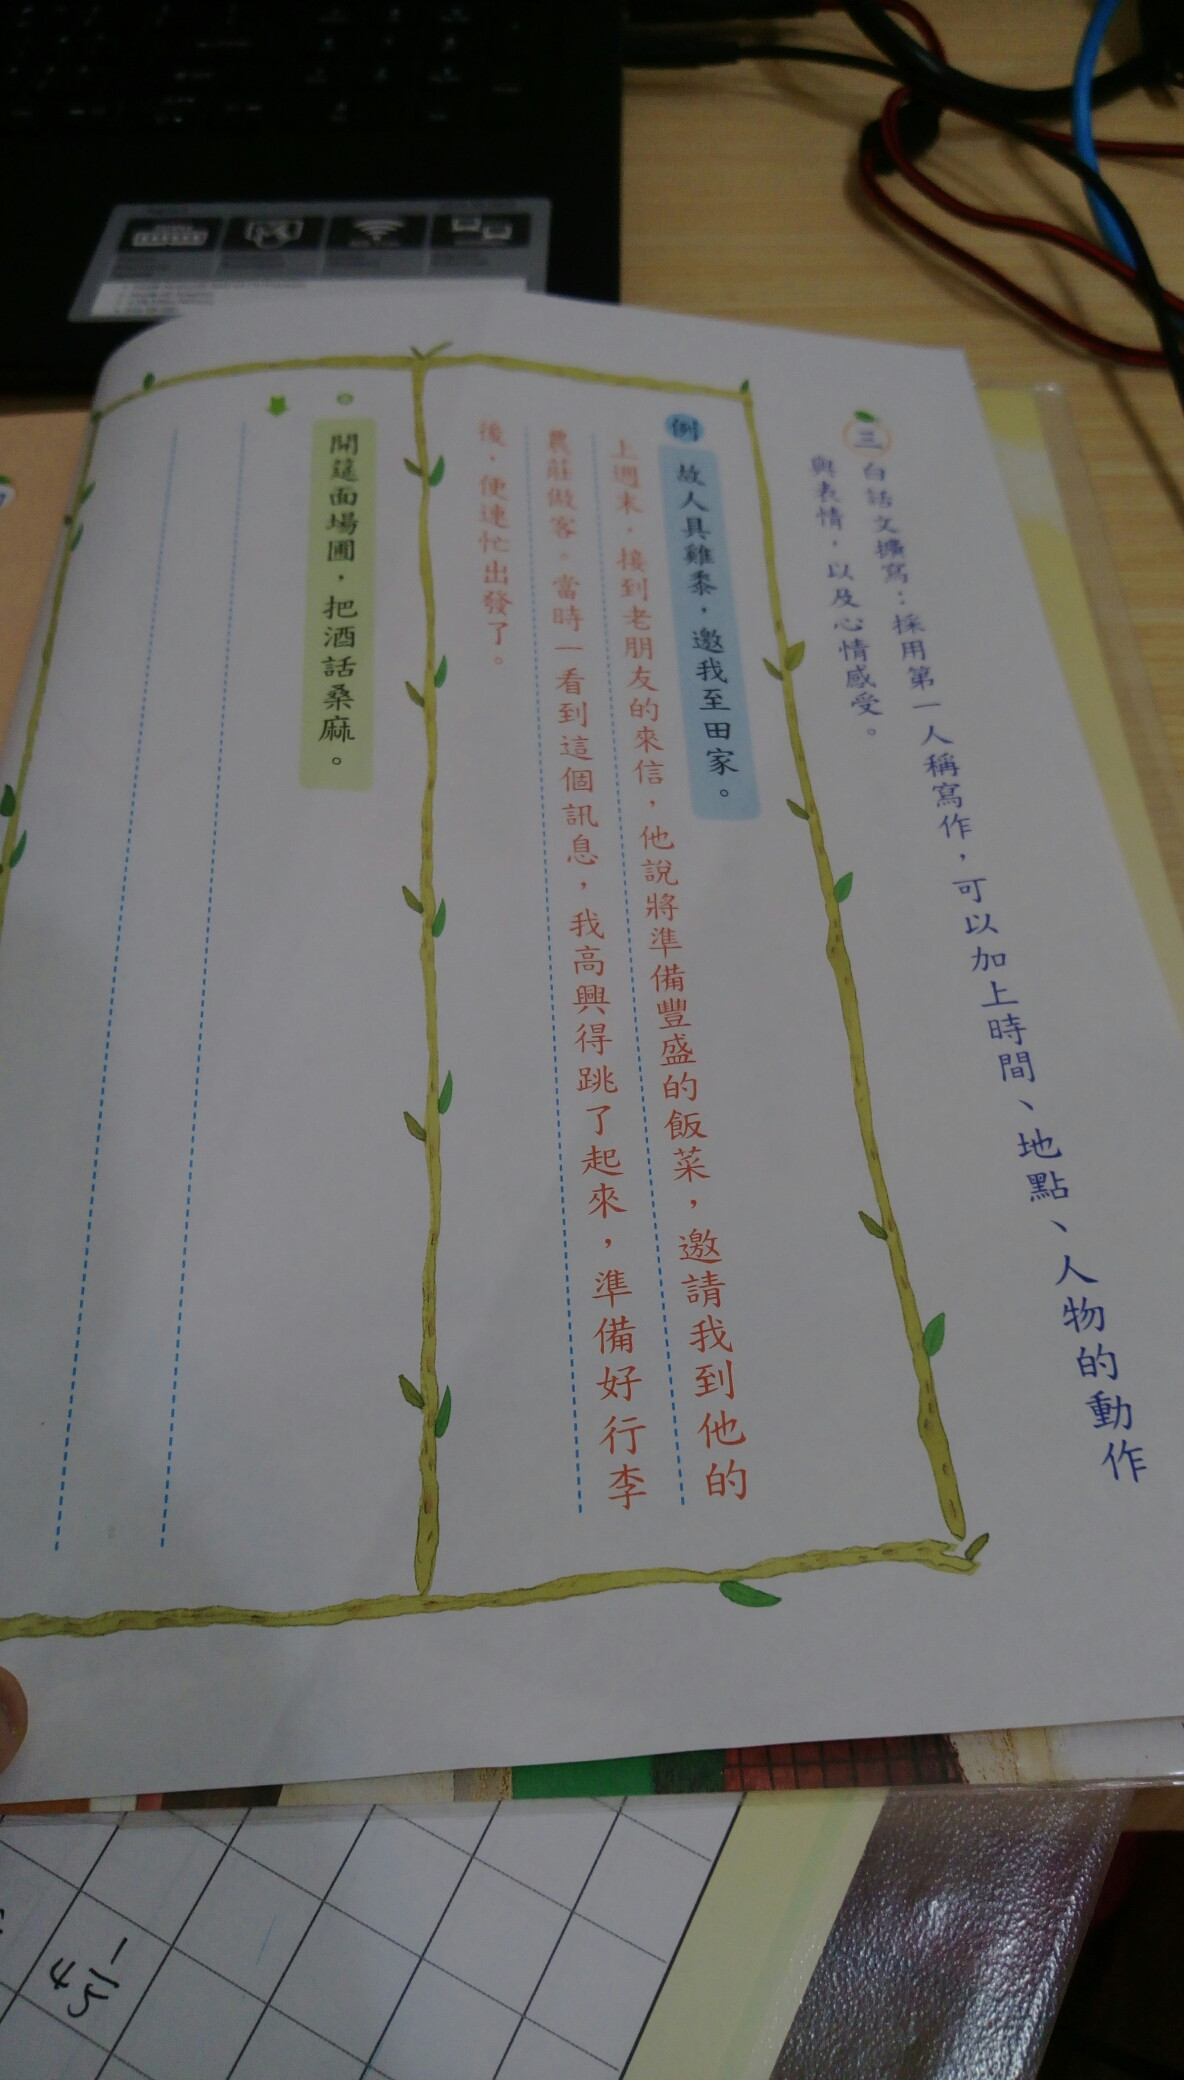 三 白話文擴寫：採用第一人稱寫作，可以加上時間、地點、人物的動作
與表情，以及心情感受。
例 故人具雞黍，邀我至田家。
上週末，接到老朋友的來信，他說將準備豐盛的飯菜，邀請我到他的
農莊做客。當時一看到這個訊息，我高興得跳了起來，準備好行李
後，便連忙出發了。
開筵面場圃，把酒話桑麻。
4 1/5